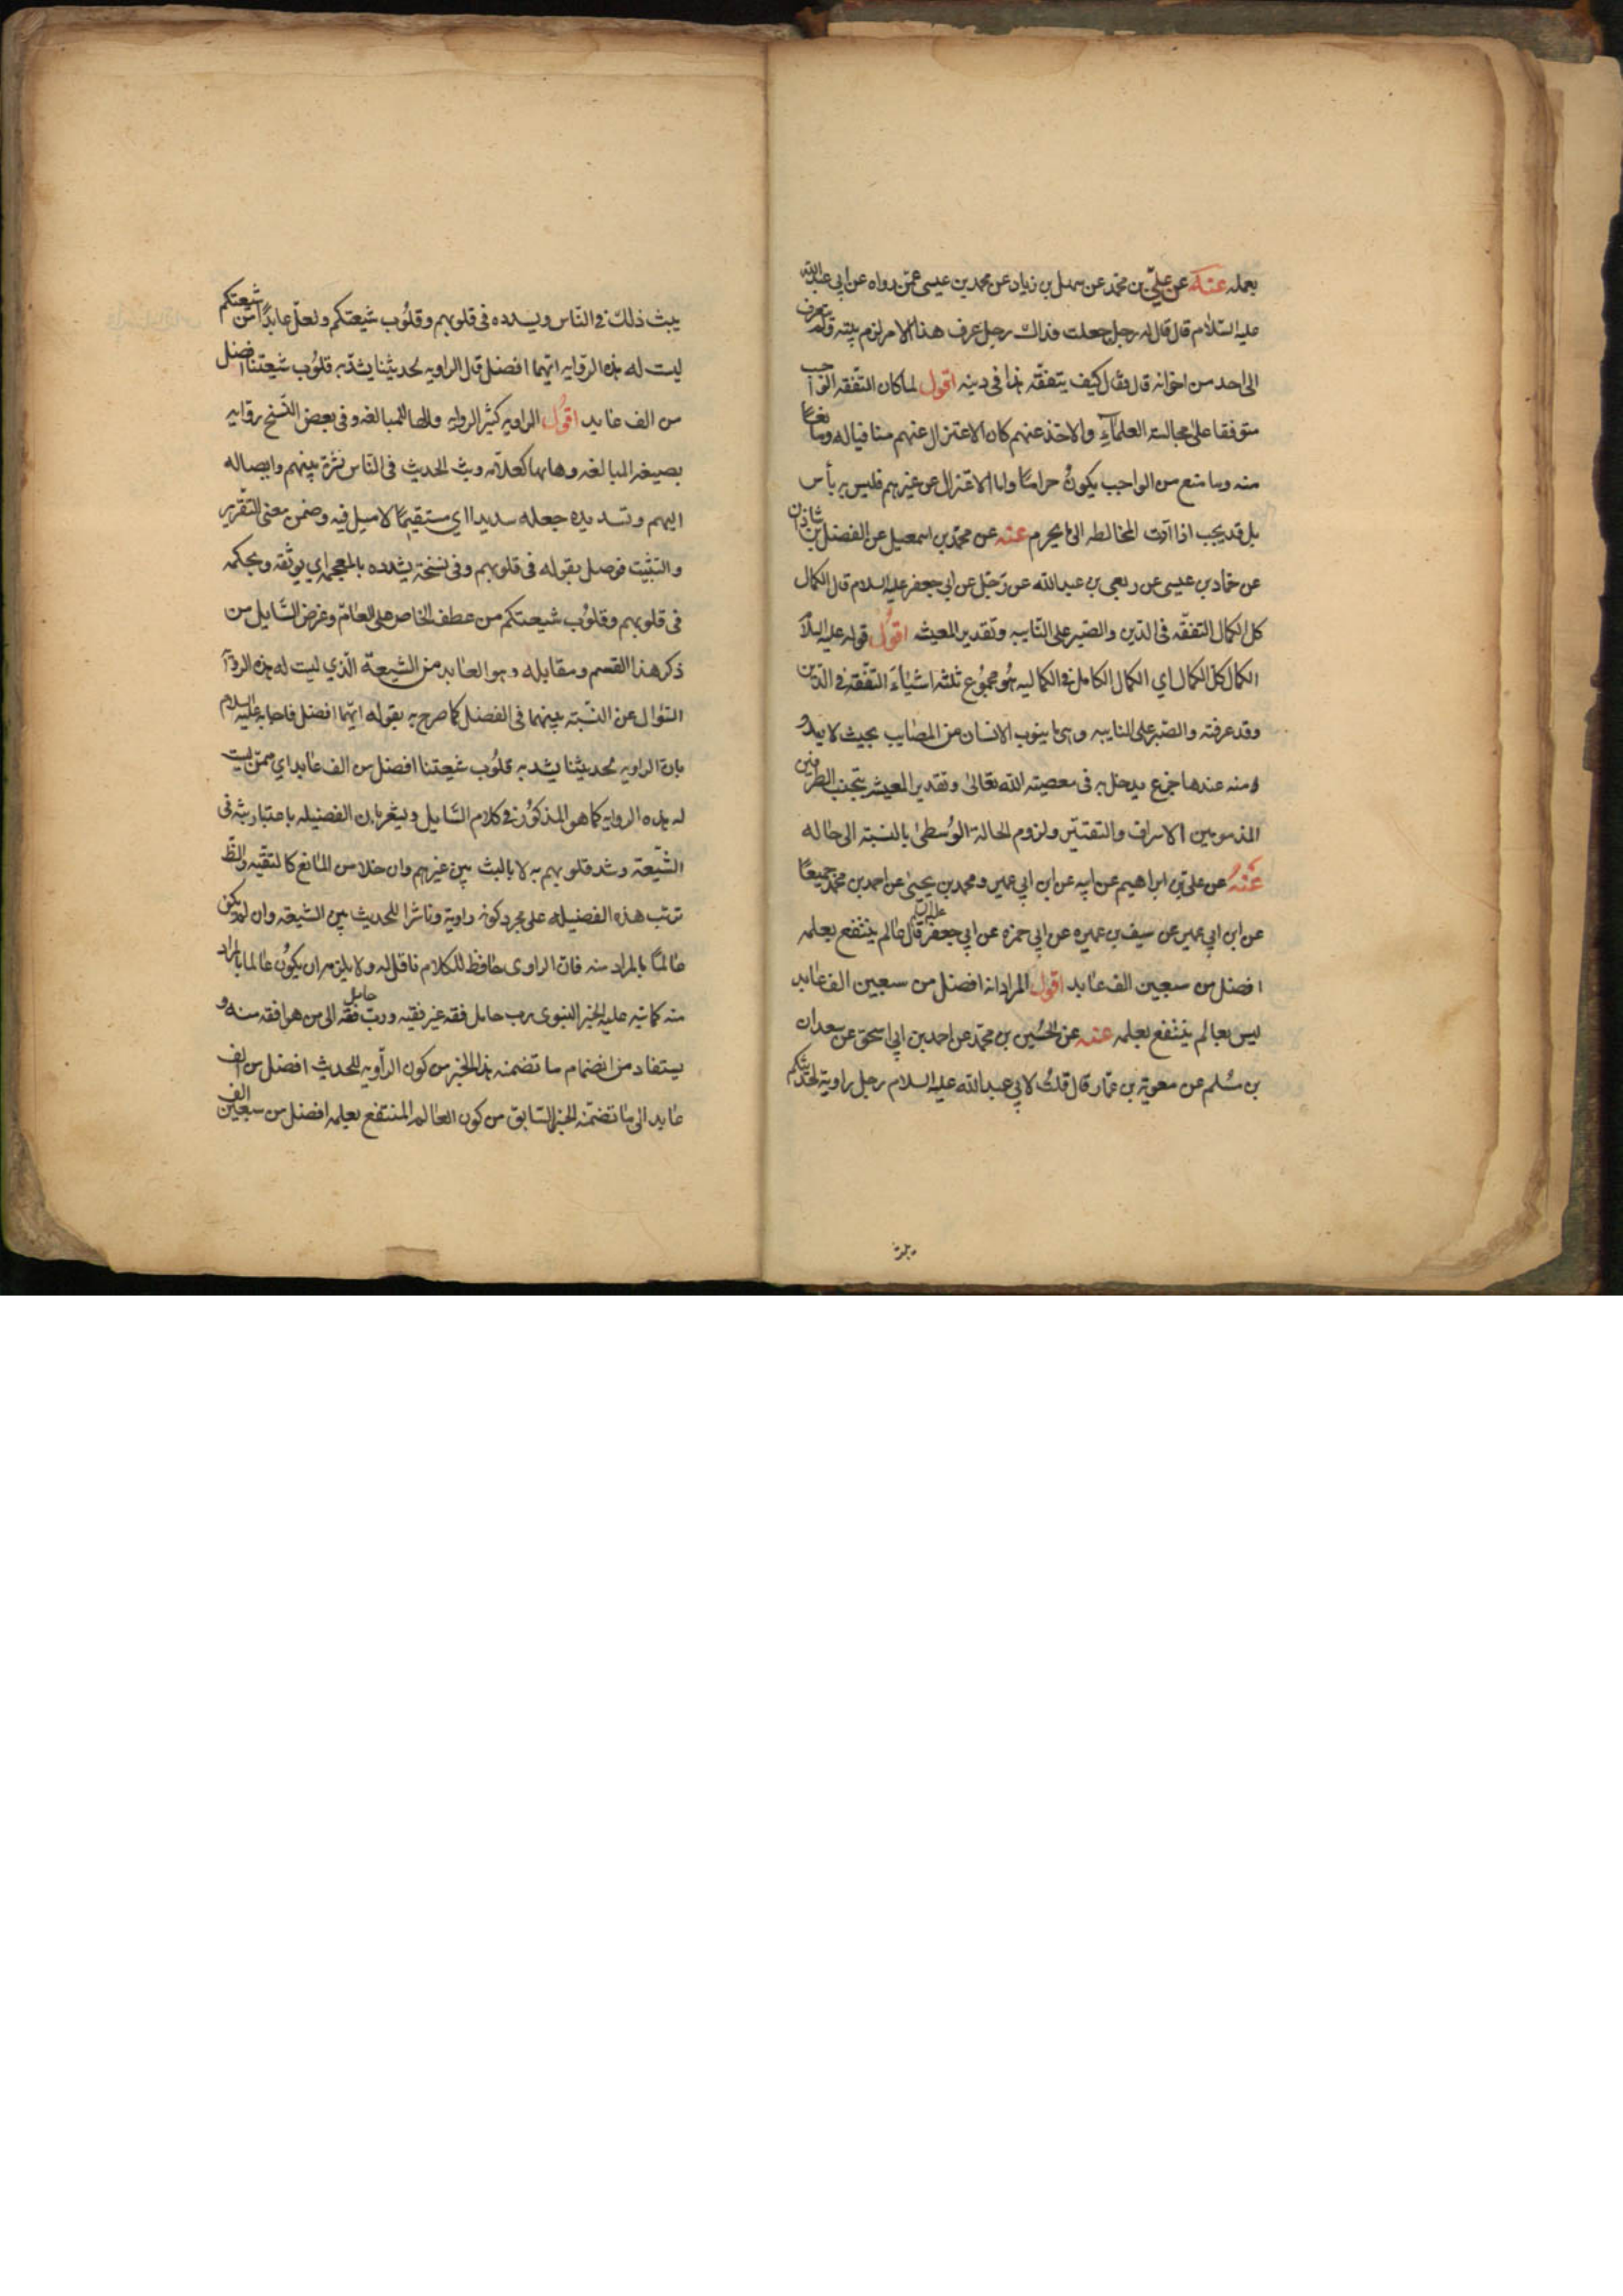 بعمله عنه عن علي بن محمد عن سهل بن زياد عن محمد بن عيسى عمن رواه عن ابي عبدالله
عليه السلام قال قال له رجل جعلت فداك رجل عرف هذا الامر لزم بيته ولم يتعرف
الى احد من اخوانه قال فقال كيف يتفقه هذا في دينه اقول لما كان التفقه الواجب
متوقفا على مجالسة العلماء والاخذ عنهم كان الاعتزال عنهم منافيا له ومانعا
منه وما منع من الواجب يكون حراما واما الاعتزال عن غيرهم فليس به بأس
بل قد يجب اذا ادت المخالطه الى ما يحرم عنه عن محمد بن اسمعيل عن الفضل بن شاذان
عن حماد بن عيسى عن ربعي بن عبدالله عن رجل عن ابي جعفر عليه السلام قال الكمال
كل الكمال التفقه في الدين والصبر على النايبه وتقدير المعيشه اقول قوله عليه السلام
الكمال كل الكمال اي الكمال الكامل في الكماليه هو مجموع ثلثه اشياء التفقه في الدين
وقد عرفته والصبر على النايبه وهي ما ينوب الانسان من المصايب بحيث لا يبدو
منه عندها جزع يدخل به في معصيته الله تعالى وتقدير المعيشه بتجنب الطرفين
المذمومين الاسراف والتقتير ولزوم الحالة الوسطى بالنسبة الى حاله
عنه عن علي بن ابراهيم عن ابيه عن ابن ابي عمير ومحمد بن يحيى عن احمد بن محمد جميعا
عن ابن ابي عمير عن سيف بن عميره عن ابي حمزه عن ابي جعفر عليه السلام قال عالم ينتفع بعلمه
افضل من سبعين الف عابد اقول المراد انه افضل من سبعين الف عابد
ليس بعالم ينتفع بعلمه عنه عن الحسين بن محمد عن احمد بن ابي اسحق عن سعدان
بن مسلم عن معوية بن عمار قال قلت لابي عبدالله عليه السلام رجل راوية لحديثكم
يبث ذلك في الناس ويسدده في قلوبهم وقلوب شيعتكم ولعل عابدا من شيعتكم
ليست له هذه الروايه ايهما افضل قال الراويه لحديثنا يشد به قلوب شيعتنا افضل
من الف عابد اقول الراويه كثير الروايه والهاء للمبالغه وفي بعض النسخ روايه
بصيغه المبالغه وهاءها كعلامه وبث الحديث في الناس نشره بينهم وايصاله
اليهم وتسديده جعله سديدا اي مستقيما لا ميل فيه وضمن معنى التقرير
والتثبيت فوصل بقوله في قلوبهم وفي نسخة يشدده بالمعجمه اي يوثقه ويحكمه
في قلوبهم وقلوب شيعتكم من عطف الخاص على العام وغرض السايل من
ذكر هذا القسم ومقابله وهو العابد من الشيعة الذي ليست له هذه الروا
السؤال عن النسبة بينهما في الفضل كما صرح به بقوله ايهما افضل فاجابه عليه السلام
بان الراويه لحديثنا يشد به قلوب شيعتنا افضل من الف عابد اي ممن ليست
له هذه الروايه كما هو المذكور في كلام السايل ويشعر بان الفضيله باعتبار بثه في
الشيعة وشد قلوبهم به لا بالبث بين غيرهم وان خلا من المانع كالتقيه والظ
ترتب هذه الفضيله على مجرد كونه راوية وناشرا للحديث بين الشيعه وان لم يكن
عالما بالمراد منه فان الراوي حافظ للكلام ناقل له ولا يلزم ان يكون عالما بالمراد
منه كما نبه عليه الخبر النبوي رب حامل فقه غير فقيه ورب حامل فقه الى من هو افقه منه و
يستفاد من انضمام ما تضمنه هذا الخبر من كون الراويه للحديث افضل من الف
عابد الى ما تضمنه الخبر السابق من كون العالم المنتفع بعلمه افضل من سبعين الف